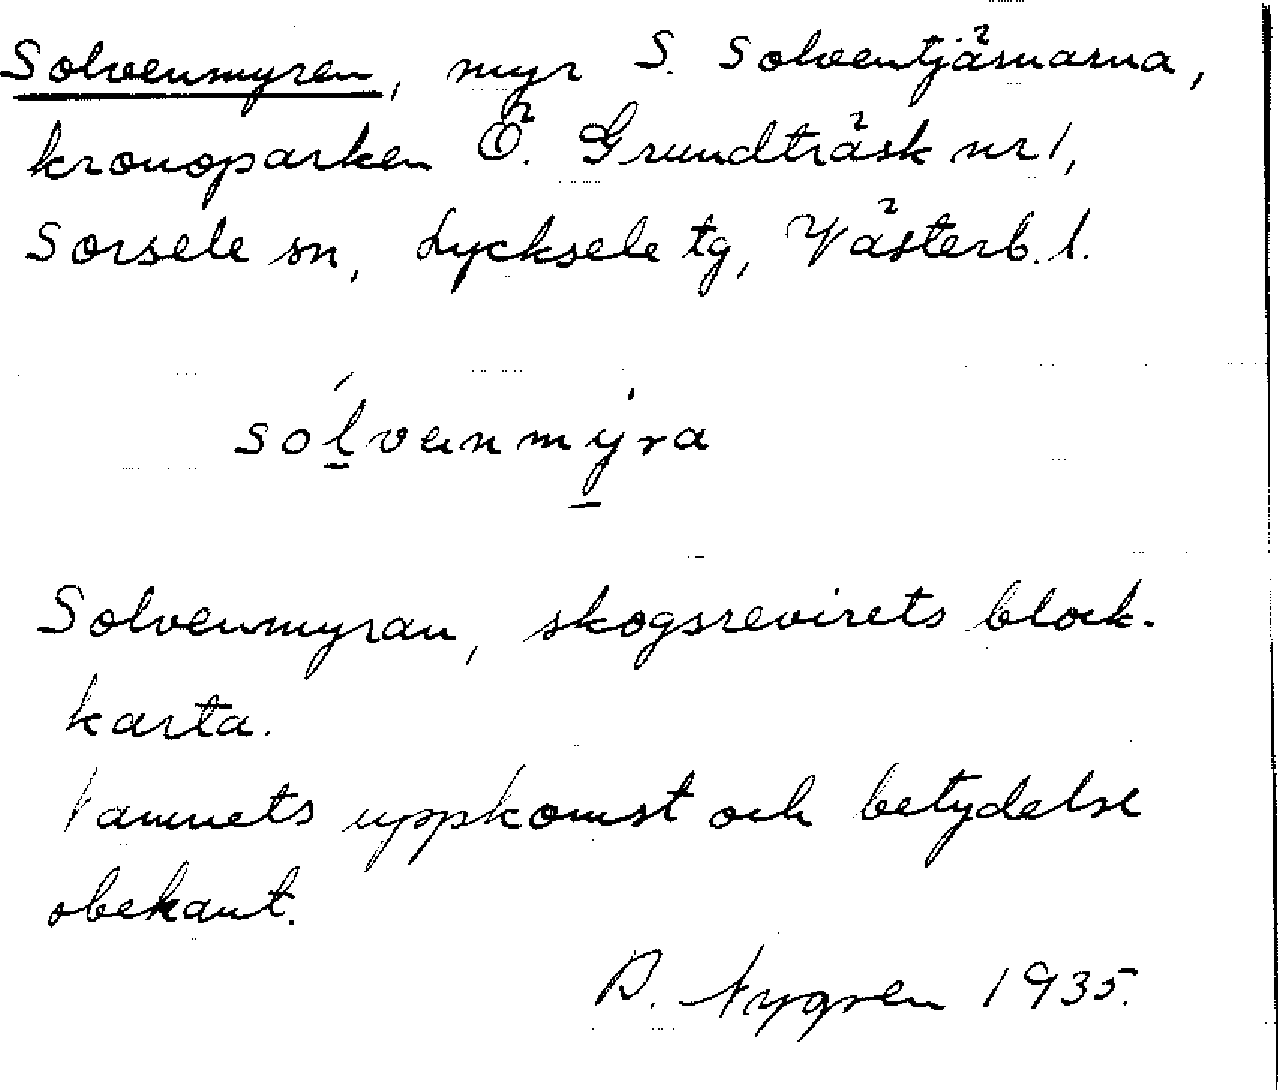 Solvenmyren, myr S. Solventjärnarna,
kronoparken Ö. Grundträsk nr 1,
Sorsele sn, Lycksele tg, Västerb. l.
sólvenmýra
Solvenmyran, skogsrevirets block-
karta.
Namnets uppkomst och betydelse
obekant.
A. Nygren 1935.